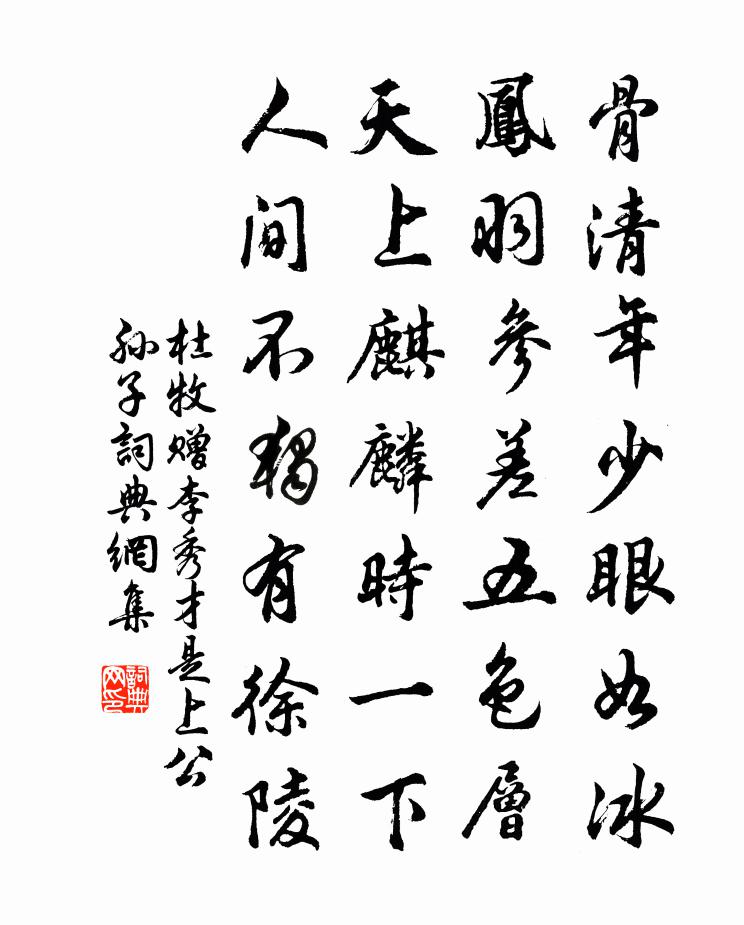 骨清年少眼如冰
鳳羽參差五色層
天上麒麟時一下
人间不独有徐陵
杜牧赠李秀才是上公
孙子詞典網集
詞典网印